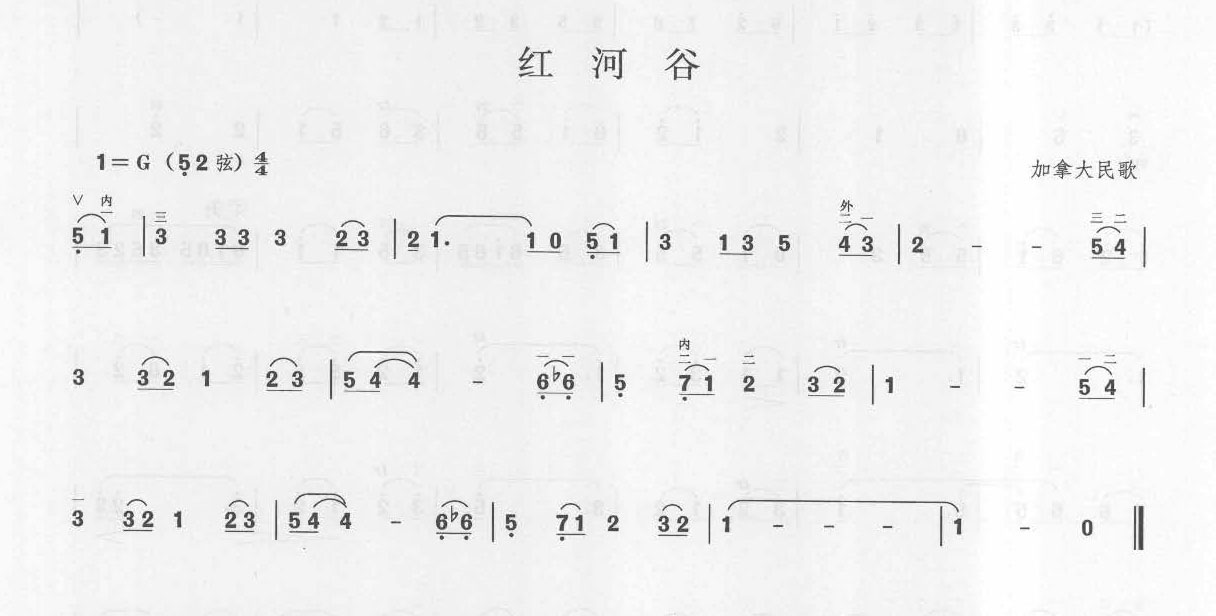 红河谷
1=G（5̣2弦）4/4
加拿大民歌
∨ 内 一 三 外 二 一 三 二
5̣ 1 | 3 3 3 3 2 3 | 2 1. 1 0 5̣ 1 | 3 1 3 5 4 3 | 2 - - 5 4 |
一 一 内 二 一 二 一 二
3 3 2 1 2 3 | 5 4 4 - 6̣ ♭6̣ | 5̣ 7̣ 1 2 3 2 | 1 - - 5 4 |
一
3 3 2 1 2 3 | 5 4 4 - 6̣ ♭6̣ | 5̣ 7̣ 1 2 3 2 | 1 - - - | 1 - 0 ‖